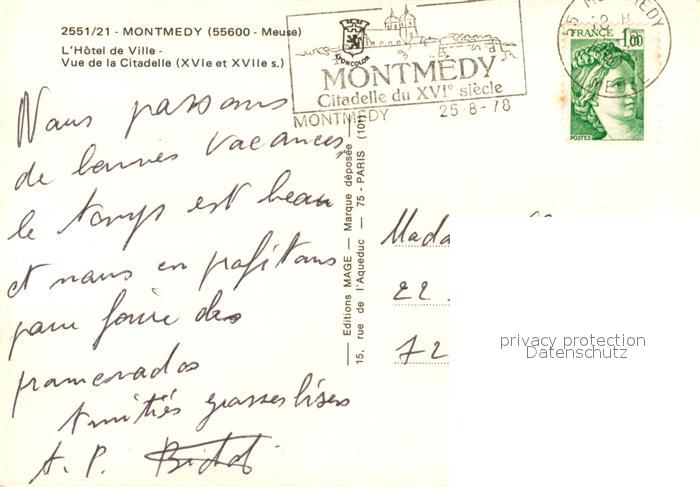 2551/21 - MONTMEDY (55600 - Meuse)
L'Hôtel de Ville -
Vue de la Citadelle (XVIe et XVIIe s.)
MONTMÉDY
Citadelle du XVIe siècle
MONTMEDY 25-8-78
FRANCE 1,00
POSTES
Nous passons
de bonnes vacances
le temps est beau
et nous en profitons
pour faire des
promenades
Amitiés grosses bises
A. P.
— Editions MAGE — Marque déposée —
15, rue de l'Aqueduc — 75 - PARIS (10e)
Mada
22
72
privacy protection
Datenschutz